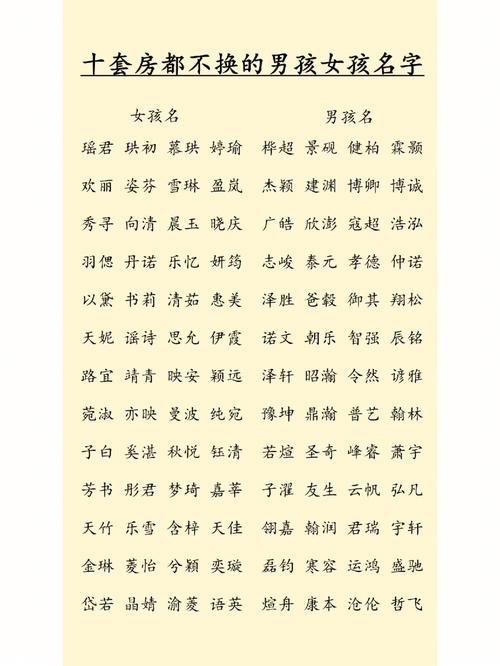 十套房都不换的男孩女孩名字
女孩名 男孩名
瑶君 珙初 慕珙 婷瑜 桦超 景砚 健柏 霖颢
欢丽 姿芬 雪琳 盈岚 杰颖 建渊 博卿 博诚
秀寻 向清 晨玉 晓庆 广皓 欣澎 寇超 浩泓
羽偲 丹诺 乐忆 妍筠 志峻 泰元 孝德 仲诺
以黛 书莉 清茹 惠美 泽胜 爸毅 御其 翔松
天妮 谣诗 思允 伊霞 诺文 朝乐 智强 辰铭
路宜 靖青 映安 颖远 泽轩 昭瀚 令然 谚雅
菀淑 亦映 曼波 纯宛 豫坤 鼎瀚 普艺 翰林
子白 奚湛 秋悦 钰清 若煊 圣奇 峰睿 萧宇
芳书 彤君 梦琦 嘉莘 子濯 友生 云帆 弘凡
天竹 乐雪 含梓 天佳 翎嘉 翰润 君瑞 宇轩
金琳 菱怡 兮颖 奕璇 磊钧 寒容 运鸿 盛驰
岱若 晶婧 渝菱 语英 煊舟 康本 沧伦 哲飞